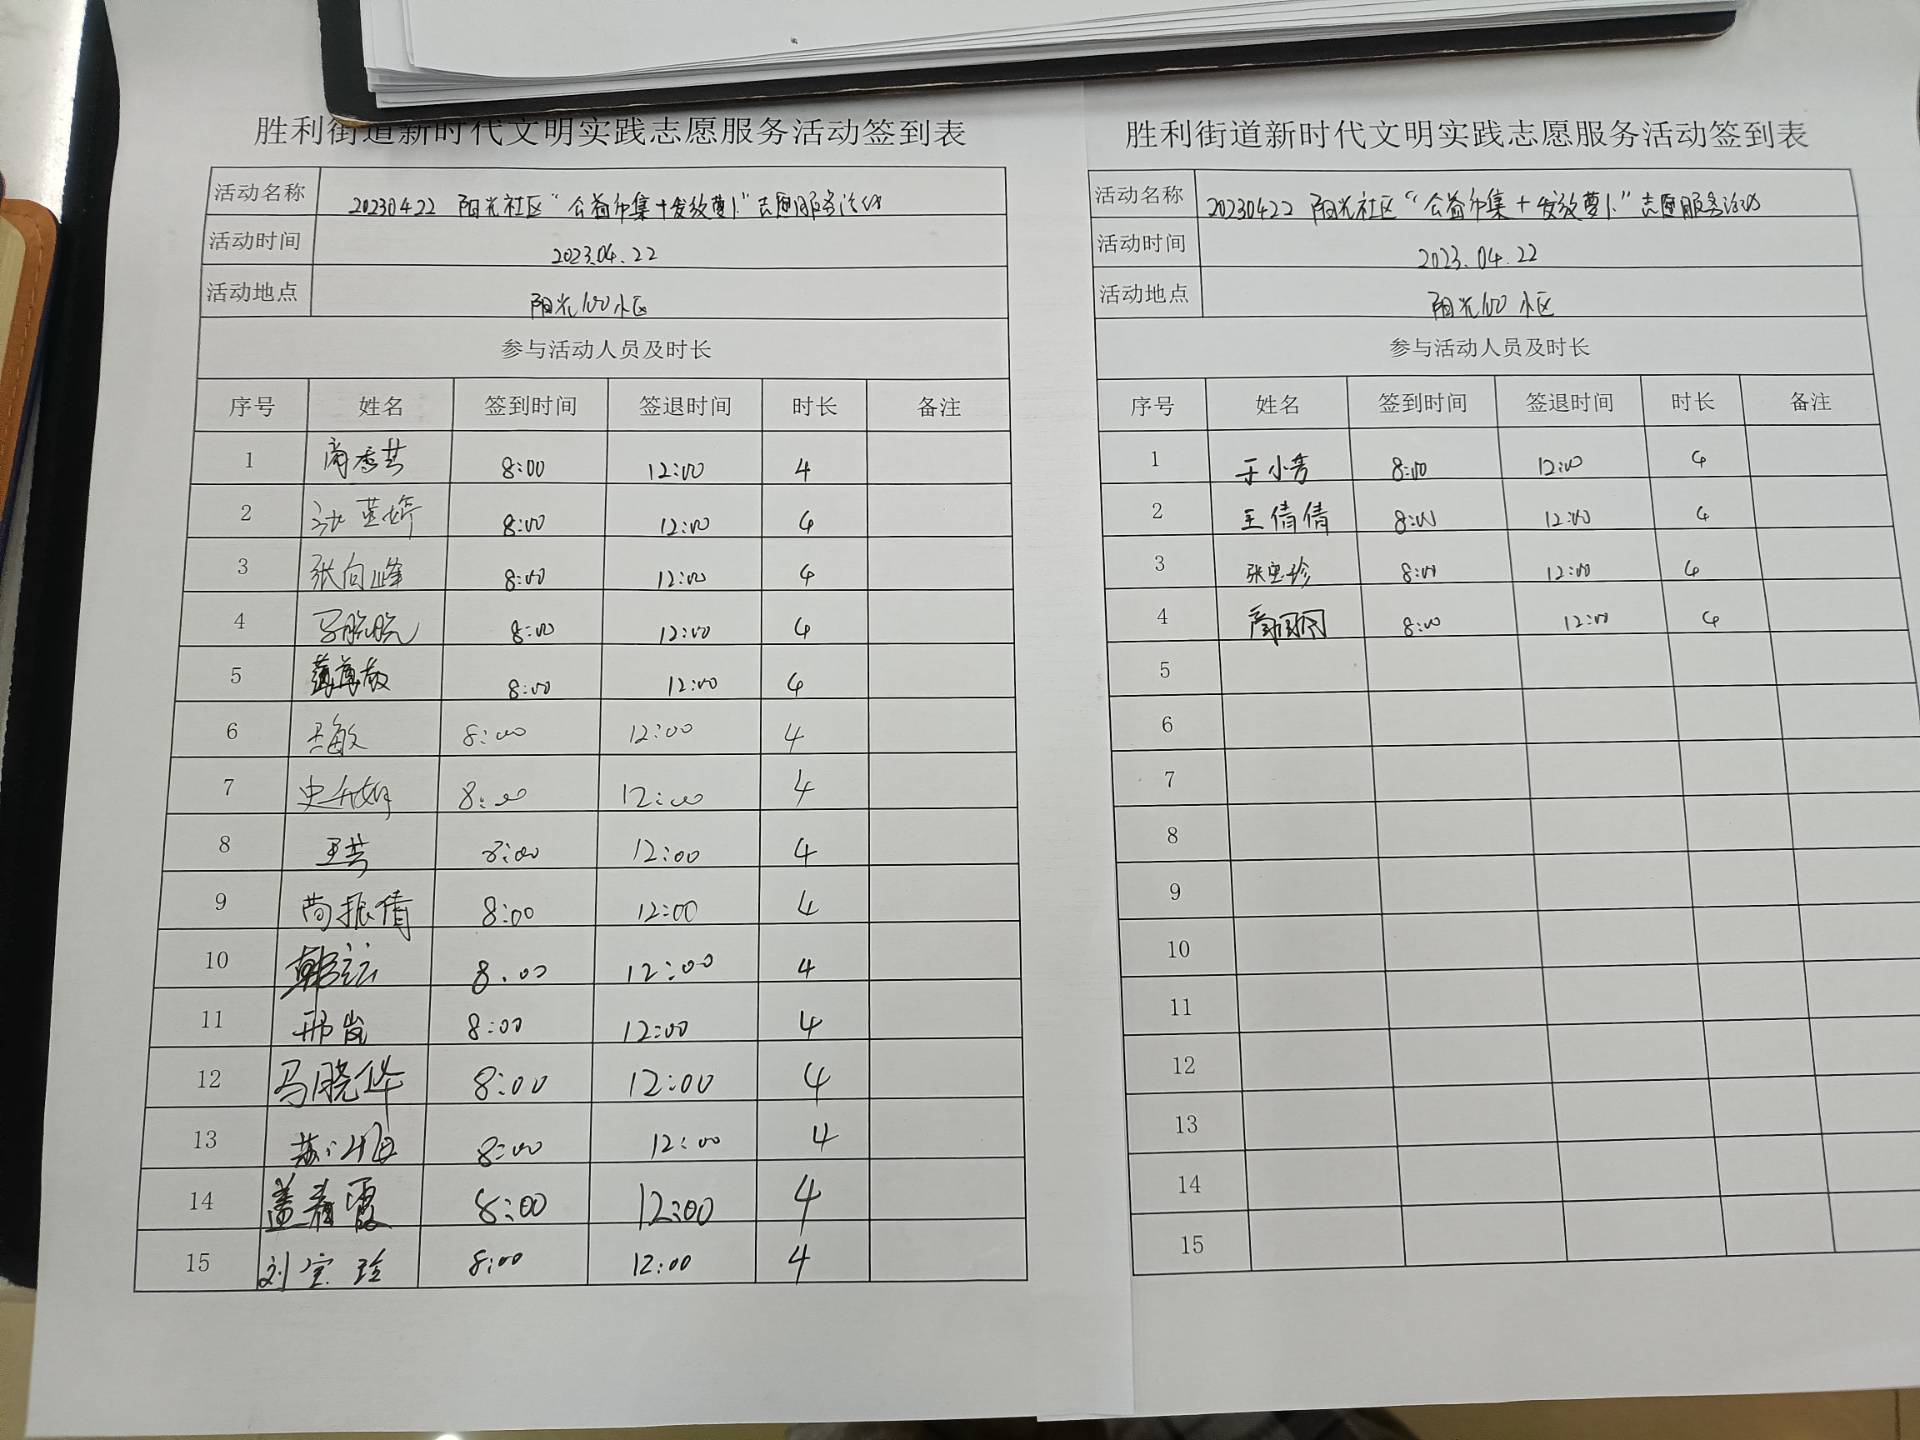 胜利街道新时代文明实践志愿服务活动签到表
活动名称 20230422 阳光社区“公益市集+发放萝卜”志愿服务活动
活动时间 2023.04.22
活动地点 阳光100小区
参与活动人员及时长
序号 姓名 签到时间 签退时间 时长 备注
1 8:00 12:00 4
2 8:00 12:00 4
3 张向峰 8:00 12:00 4
4 马晓晓 8:00 12:00 4
5 8:00 12:00 4
6 王敏 8:00 12:00 4
7 8:00 12:00 4
8 王芸 8:00 12:00 4
9 尚振倩 8:00 12:00 4
10 8:00 12:00 4
11 邢岚 8:00 12:00 4
12 马晓华 8:00 12:00 4
13 8:00 12:00 4
14 盖春霞 8:00 12:00 4
15 刘宝珍 8:00 12:00 4
胜利街道新时代文明实践志愿服务活动签到表
活动名称 20230422 阳光社区“公益市集+发放萝卜”志愿服务活动
活动时间 2023.04.22
活动地点 阳光100小区
参与活动人员及时长
序号 姓名 签到时间 签退时间 时长 备注
1 于小芳 8:00 12:00 4
2 王倩倩 8:00 12:00 4
3 8:00 12:00 4
4 8:00 12:00 4
5
6
7
8
9
10
11
12
13
14
15